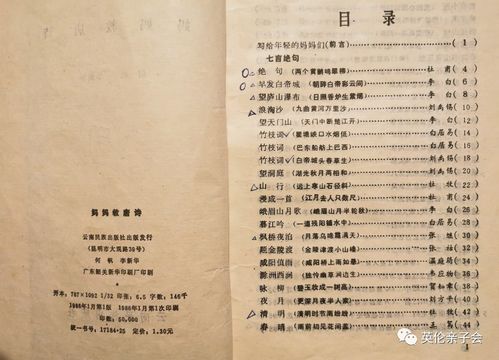 妈妈教唐诗
云南民族出版社出版发行
(昆明市大观路39号)
何帆 李新华
广东韶关新华印刷厂印刷
开本:787×1092 1/32 印张:6.5 字数:146千
1986年1月第1版 1986年1月第1次印刷
印数:50,000
统一书号:17184·25 定价:1.30元
目 录
写给年轻的妈妈们(前言) (1)
七言绝句
绝 句(两个黄鹂鸣翠柳) 杜 甫(4)
早发白帝城(朝辞白帝彩云间) 李 白(6)
望庐山瀑布(日照香炉生紫烟) 李 白(8)
浪淘沙(九曲黄河万里沙) 刘禹锡(10)
望天门山(天门中断楚江开) 李 白(12)
竹枝词(瞿塘峡口水烟低) 白居易(14)
竹枝词(巴东船舫上巴西) 白居易(16)
竹枝词(白帝城头春草生) 刘禹锡(18)
望洞庭(湖光秋月两相和) 刘禹锡(20)
山 行(远上寒山石径斜) 杜 牧(22)
漫成一首(江月去人只数尺) 杜 甫(24)
峨眉山月歌(峨眉山月半轮秋) 李 白(26)
暮江吟(一道残阳铺水中) 白居易(28)
枫桥夜泊(月落乌啼霜满天) 张 继(30)
题金陵渡(金陵津渡小山楼) 张 祜(32)
咸阳值雨(咸阳桥上雨如悬) 温庭筠(34)
滁洲西涧(独怜幽草涧边生) 韦应物(36)
咏 柳(碧玉妆成一树高) 贺知章(38)
夜 月(更深月夜半人家) 刘方平(40)
清 明(清明时节雨纷纷) 杜 牧
春 晴(雨前初见花间蕊) 王 驾(44)
英伦亲子会